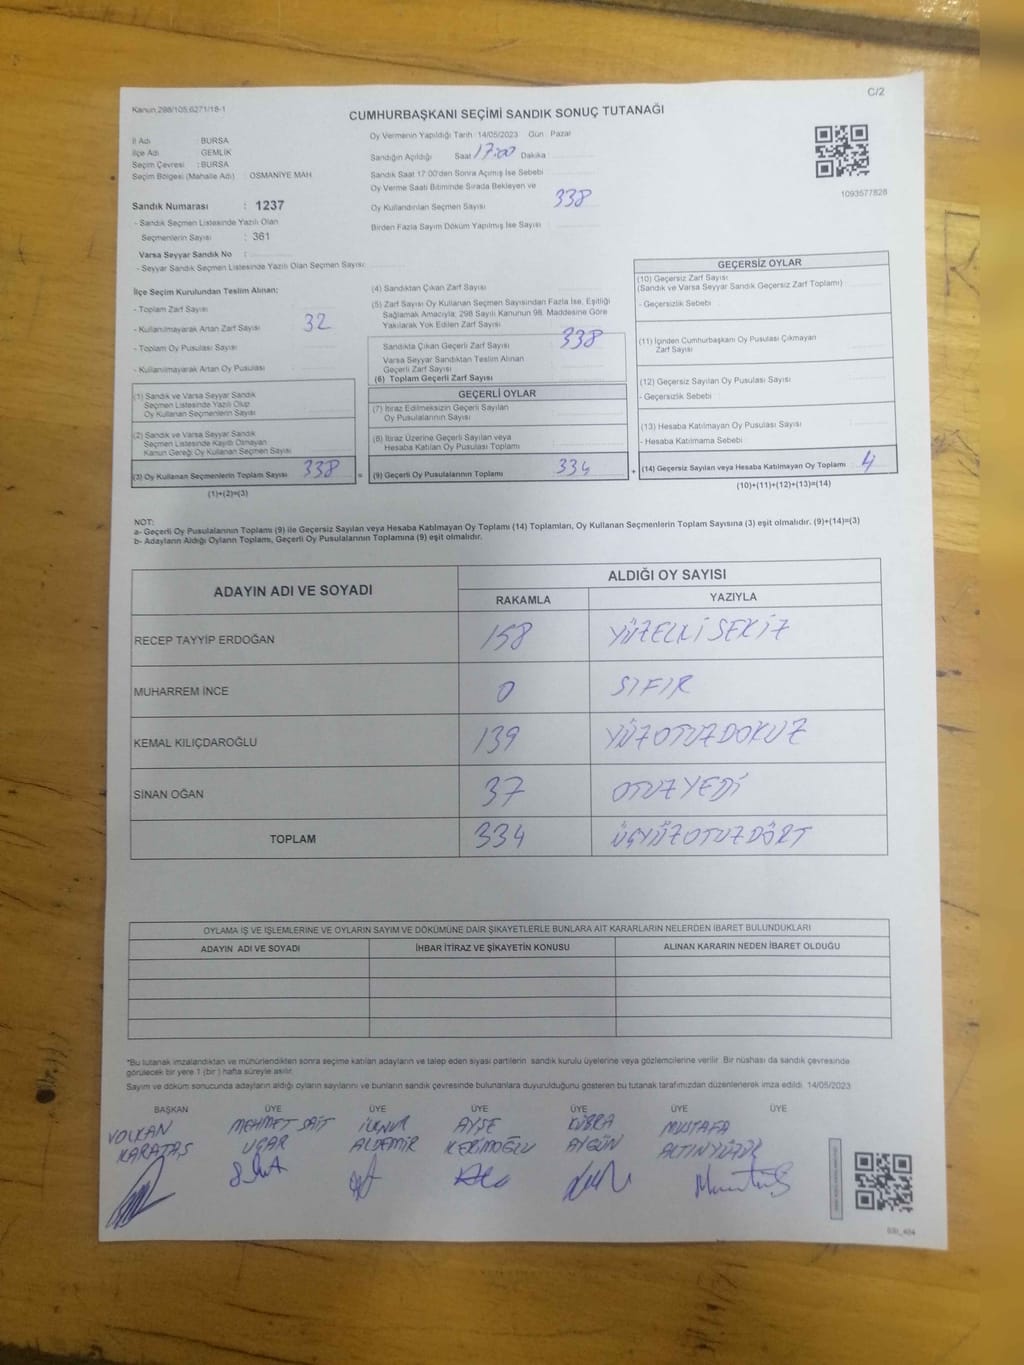 Kanun 298/105,6271/18-1
C/2
CUMHURBAŞKANI SEÇİMİ SANDIK SONUÇ TUTANAĞI
İl Adı : BURSA
İlçe Adı : GEMLİK
Seçim Çevresi : BURSA
Seçim Bölgesi (Mahalle Adı) : OSMANİYE MAH
Oy Vermenin Yapıldığı Tarih :14/05/2023 Gün : Pazar
Sandığın Açıldığı Saat 17:00 Dakika
Sandık Saat 17:00'den Sonra Açılmış İse Sebebi
Oy Verme Saati Bitiminde Sırada Bekleyen ve
Oy Kullandırılan Seçmen Sayısı 338
Birden Fazla Sayım Döküm Yapılmış İse Sayısı
1093577828
Sandık Numarası : 1237
- Sandık Seçmen Listesinde Yazılı Olan
Seçmenlerin Sayısı : 361
Varsa Seyyar Sandık No :
- Seyyar Sandık Seçmen Listesinde Yazılı Olan Seçmen Sayısı:
İlçe Seçim Kurulundan Teslim Alınan:
- Toplam Zarf Sayısı
- Kullanılmayarak Artan Zarf Sayısı 32
- Toplam Oy Pusulası Sayısı
- Kullanılmayarak Artan Oy Pusulası
(1) Sandık ve Varsa Seyyar Sandık
Seçmen Listesinde Yazılı Olup
Oy Kullanan Seçmenlerin Sayısı
(2) Sandık ve Varsa Seyyar Sandık
Seçmen Listesinde Kayıtlı Olmayan
Kanun Gereği Oy Kullanan Seçmen Sayısı
(3) Oy Kullanan Seçmenlerin Toplam Sayısı 338 =
(1)+(2)=(3)
(4) Sandıktan Çıkan Zarf Sayısı
(5) Zarf Sayısı Oy Kullanan Seçmen Sayısından Fazla İse, Eşitliği
Sağlamak Amacıyla; 298 Sayılı Kanunun 98. Maddesine Göre
Yakılarak Yok Edilen Zarf Sayısı
Sandıkta Çıkan Geçerli Zarf Sayısı 338
Varsa Seyyar Sandıktan Teslim Alınan
Geçerli Zarf Sayısı
(6) Toplam Geçerli Zarf Sayısı
GEÇERLİ OYLAR
(7) İtiraz Edilmeksizin Geçerli Sayılan
Oy Pusulalarının Sayısı
(8) İtiraz Üzerine Geçerli Sayılan veya
Hesaba Katılan Oy Pusulası Toplamı
(9) Geçerli Oy Pusulalarının Toplamı 334 +
GEÇERSİZ OYLAR
(10) Geçersiz Zarf Sayısı
(Sandık ve Varsa Seyyar Sandık Geçersiz Zarf Toplamı)
- Geçersizlik Sebebi
(11) İçinden Cumhurbaşkanı Oy Pusulası Çıkmayan
Zarf Sayısı
(12) Geçersiz Sayılan Oy Pusulası Sayısı
- Geçersizlik Sebebi
(13) Hesaba Katılmayan Oy Pusulası Sayısı
- Hesaba Katılmama Sebebi
(14) Geçersiz Sayılan veya Hesaba Katılmayan Oy Toplamı 4
(10)+(11)+(12)+(13)=(14)
NOT:
a- Geçerli Oy Pusulalarının Toplamı (9) ile Geçersiz Sayılan veya Hesaba Katılmayan Oy Toplamı (14) Toplamları, Oy Kullanan Seçmenlerin Toplam Sayısına (3) eşit olmalıdır. (9)+(14)=(3)
b- Adayların Aldığı Oyların Toplamı, Geçerli Oy Pusulalarının Toplamına (9) eşit olmalıdır.
ADAYIN ADI VE SOYADI
ALDIĞI OY SAYISI
RAKAMLA YAZIYLA
RECEP TAYYİP ERDOĞAN 158 YÜZELLİSEKİZ
MUHARREM İNCE 0 SIFIR
KEMAL KILIÇDAROĞLU 139 YÜZOTUZDOKUZ
SİNAN OĞAN 37 OTUZYEDİ
TOPLAM 334 ÜÇYÜZOTUZDÖRT
OYLAMA İŞ VE İŞLEMLERİNE VE OYLARIN SAYIM VE DÖKÜMÜNE DAİR ŞİKAYETLERLE BUNLARA AİT KARARLARIN NELERDEN İBARET BULUNDUKLARI
ADAYIN ADI VE SOYADI İHBAR İTİRAZ VE ŞİKAYETİN KONUSU ALINAN KARARIN NEDEN İBARET OLDUĞU
*Bu tutanak imzalandıktan ve mühürlendikten sonra seçime katılan adayların ve talep eden siyasi partilerin sandık kurulu üyelerine veya gözlemcilerine verilir. Bir nüshası da sandık çevresinde
görülecek bir yere 1 (bir) hafta süreyle asılır.
Sayım ve döküm sonucunda adayların aldığı oyların sayılarını ve bunların sandık çevresinde bulunanlara duyurulduğunu gösteren bu tutanak tarafımızdan düzenlenerek imza edildi. 14/05/2023
BAŞKAN ÜYE ÜYE ÜYE ÜYE ÜYE ÜYE
VOLKAN MEHMET SAİT İLKNUR AYŞE KÜBRA MUSTAFA
KARATAŞ UÇAR ALDEMİR KERİMOĞLU AYGÜN ALTINYÜZÜK